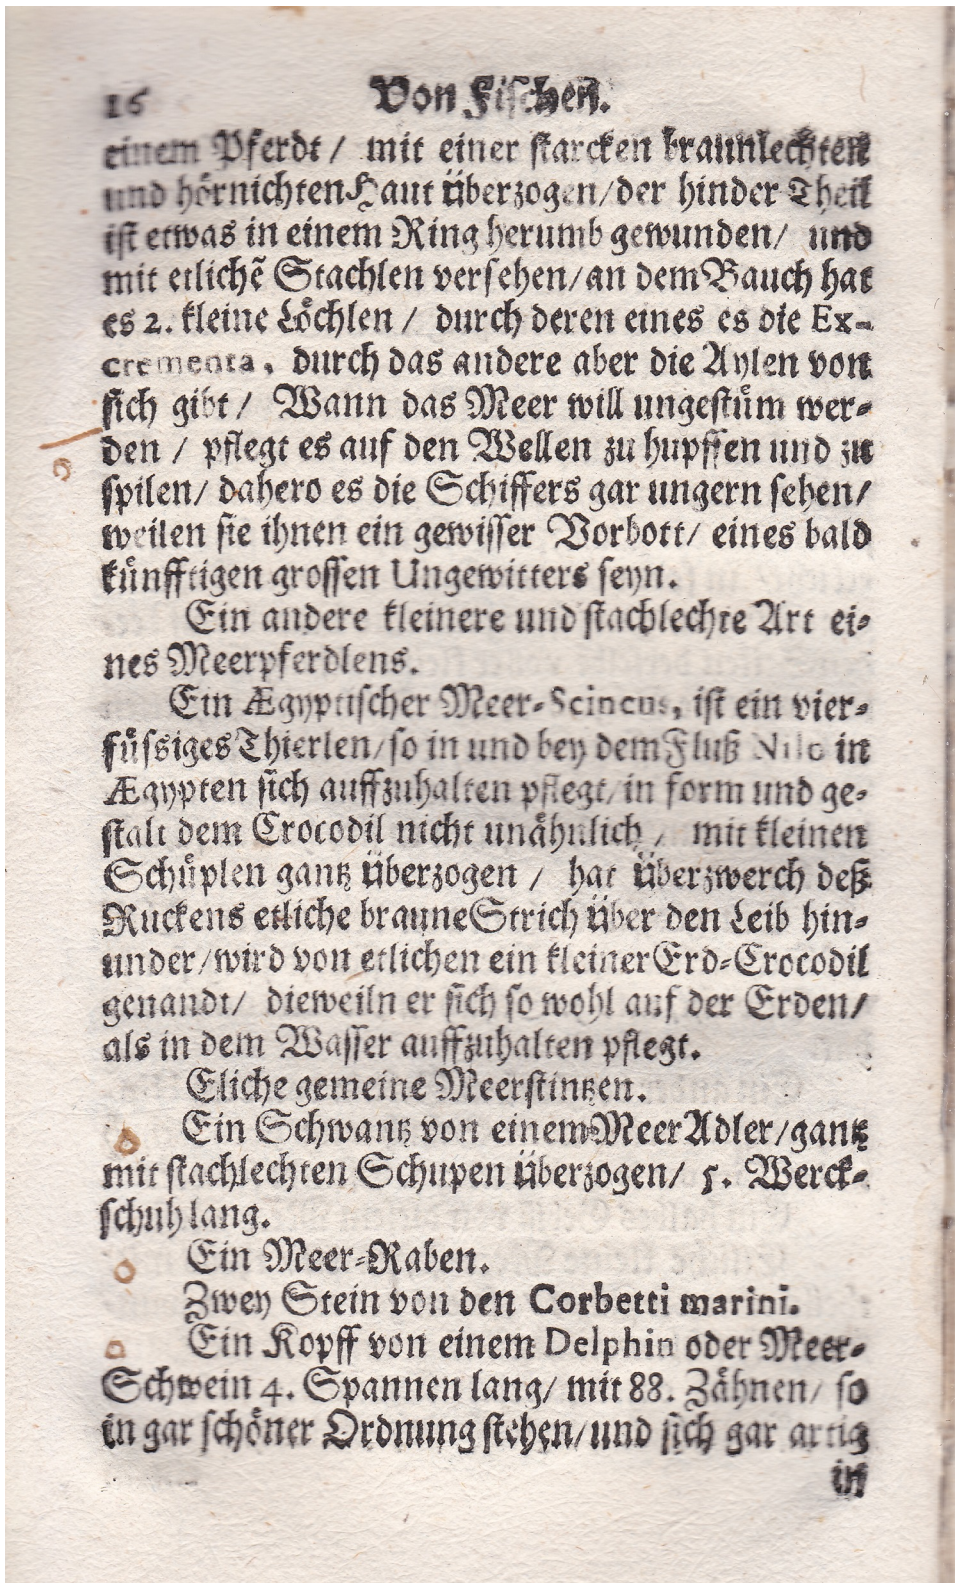 16 Von Fischen.
einem Pferdt / mit einer starcken braunlechten
und hörnichten Haut überzogen / der hinder Theil
ist etwas in einem Ring herumb gewunden / und
mit etlichẽ Stachlen versehen / an dem Bauch hat
es 2. kleine Löchlen / durch deren eines es die Ex-
crementa, durch das andere aber die Aylen von
sich gibt / Wann das Meer will ungestüm wer-
den / pflegt es auf den Wellen zu hupffen und zu
spilen / dahero es die Schiffers gar ungern sehen /
weilen sie ihnen ein gewisser Vorbott / eines bald
künfftigen grossen Ungewitters seyn.
Ein andere kleinere und stachlechte Art ei-
nes Meerpferdlens.
Ein Ægyptischer Meer-Scincus, ist ein vier-
füssiges Thierlen / so in und bey dem Fluß Nilo in
Ægypten sich auffzuhalten pflegt / in form und ge-
stalt dem Crocodil nicht unähnlich / mit kleinen
Schüplen gantz überzogen / hat überzwerch deß
Ruckens etliche braune Strich über den Leib hin-
under / wird von etlichen ein kleiner Erd-Crocodil
genandt / dieweiln er sich so wohl auf der Erden /
als in dem Wasser auffzuhalten pflegt.
Eliche gemeine Meerstintzen.
Ein Schwantz von einem Meer Adler / gantz
mit stachlechten Schupen überzogen / 5. Werck-
schuh lang.
Ein Meer-Raben.
Zwey Stein von den Corbetti marini.
Ein Kopff von einem Delphin oder Meer-
Schwein 4. Spannen lang / mit 88. Zähnen / so
in gar schöner Ordnung stehen / und sich gar artig
in